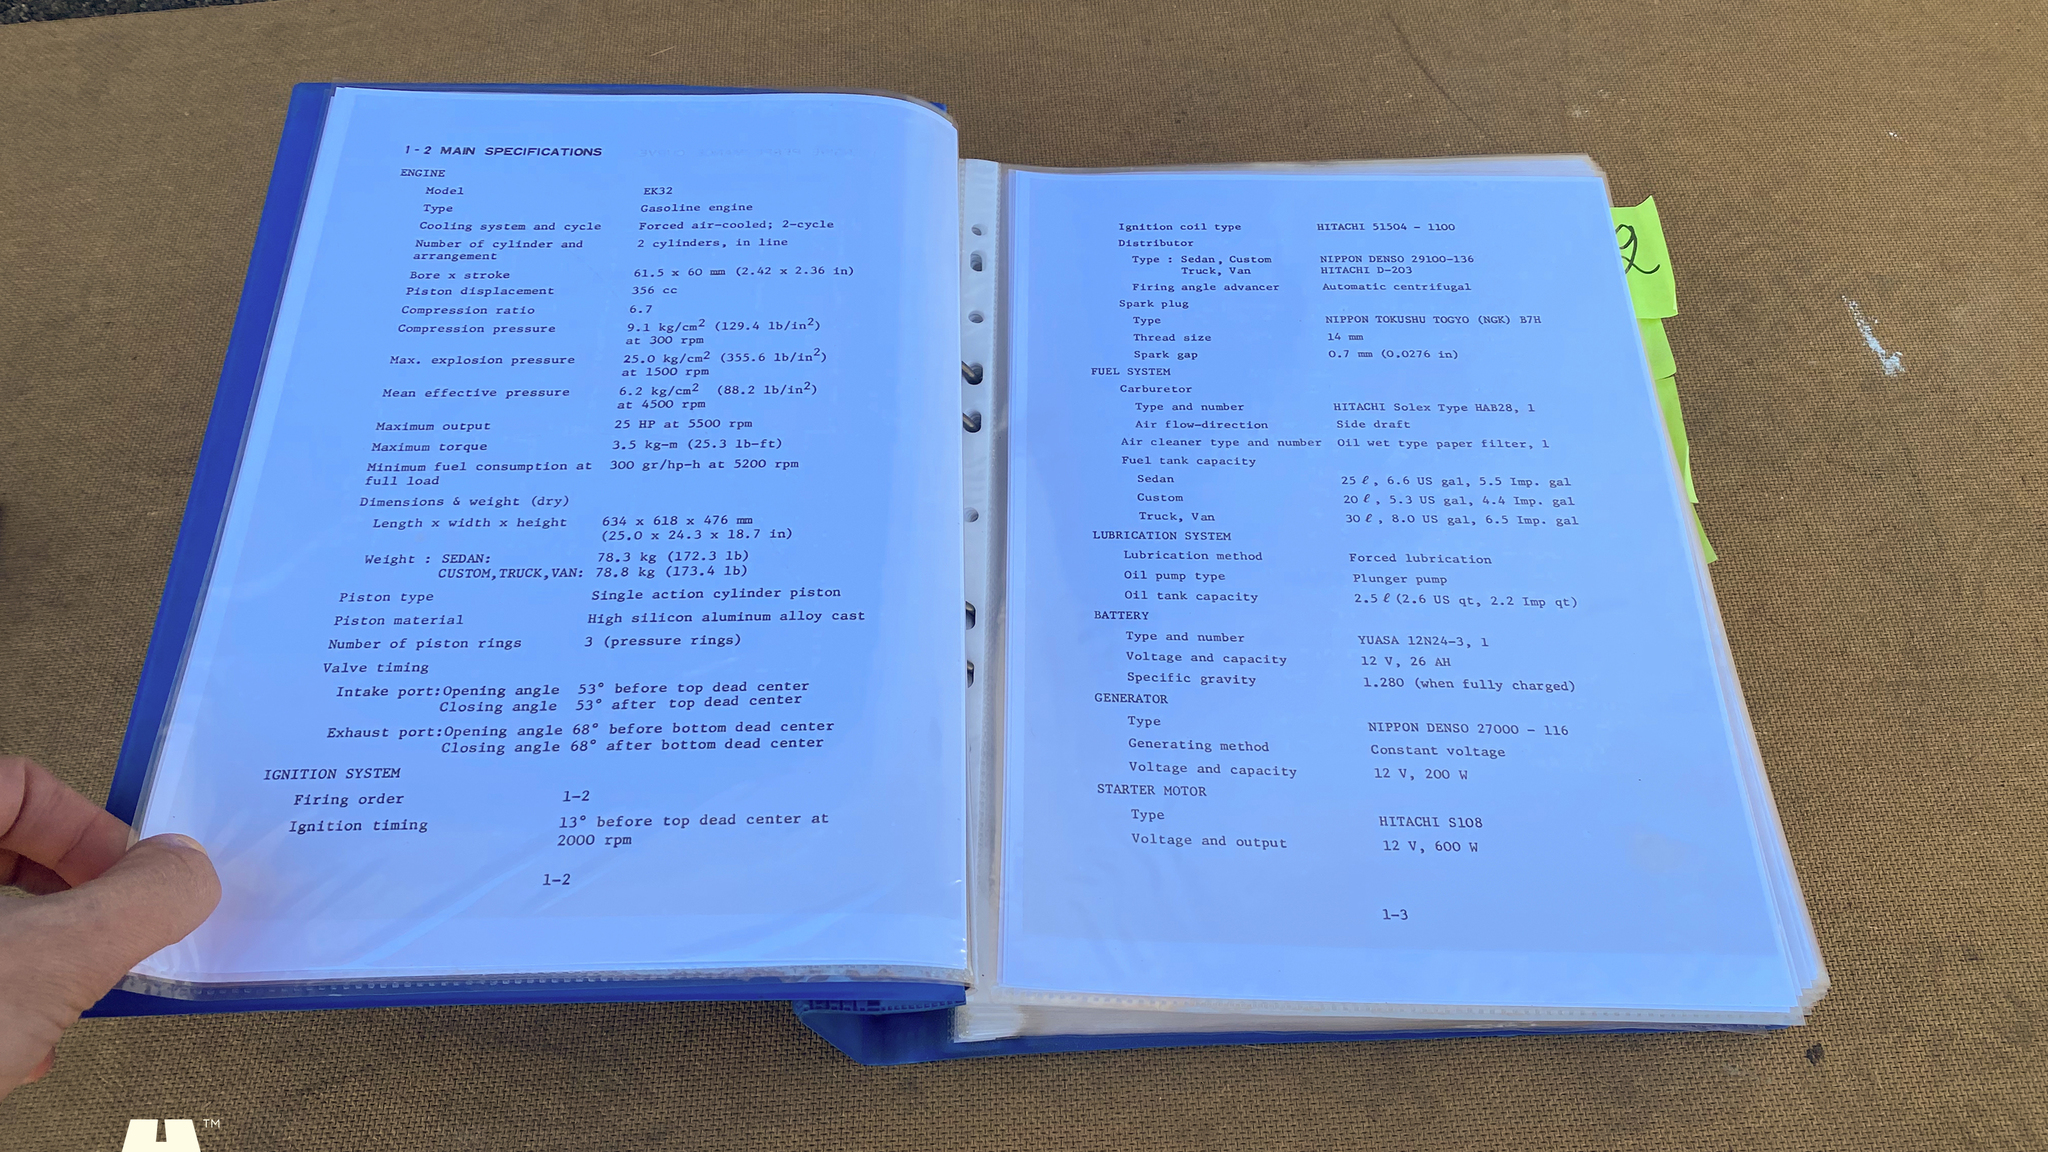 1-2 MAIN SPECIFICATIONS
ENGINE
Model EK32
Type Gasoline engine
Cooling system and cycle Forced air-cooled; 2-cycle
Number of cylinder and 2 cylinders, in line
arrangement
Bore x stroke 61.5 x 60 mm (2.42 x 2.36 in)
Piston displacement 356 cc
Compression ratio 6.7
Compression pressure 9.1 kg/cm2 (129.4 lb/in2)
at 300 rpm
Max. explosion pressure 25.0 kg/cm2 (355.6 lb/in2)
at 1500 rpm
Mean effective pressure 6.2 kg/cm2 (88.2 lb/in2)
at 4500 rpm
Maximum output 25 HP at 5500 rpm
Maximum torque 3.5 kg-m (25.3 lb-ft)
Minimum fuel consumption at 300 gr/hp-h at 5200 rpm
full load
Dimensions & weight (dry)
Length x width x height 634 x 618 x 476 mm
(25.0 x 24.3 x 18.7 in)
Weight : SEDAN: 78.3 kg (172.3 lb)
CUSTOM,TRUCK,VAN: 78.8 kg (173.4 lb)
Piston type Single action cylinder piston
Piston material High silicon aluminum alloy cast
Number of piston rings 3 (pressure rings)
Valve timing
Intake port:Opening angle 53° before top dead center
Closing angle 53° after top dead center
Exhaust port:Opening angle 68° before bottom dead center
Closing angle 68° after bottom dead center
IGNITION SYSTEM
Firing order 1-2
Ignition timing 13° before top dead center at
2000 rpm
1-2
Ignition coil type HITACHI 51504 - 1100
Distributor
Type : Sedan, Custom NIPPON DENSO 29100-136
Truck, Van HITACHI D-203
Firing angle advancer Automatic centrifugal
Spark plug
Type NIPPON TOKUSHU TOGYO (NGK) B7H
Thread size 14 mm
Spark gap 0.7 mm (0.0276 in)
FUEL SYSTEM
Carburetor
Type and number HITACHI Solex Type HAB28, 1
Air flow-direction Side draft
Air cleaner type and number Oil wet type paper filter, 1
Fuel tank capacity
Sedan 25 ℓ, 6.6 US gal, 5.5 Imp. gal
Custom 20 ℓ, 5.3 US gal, 4.4 Imp. gal
Truck, Van 30 ℓ, 8.0 US gal, 6.5 Imp. gal
LUBRICATION SYSTEM
Lubrication method Forced lubrication
Oil pump type Plunger pump
Oil tank capacity 2.5 ℓ (2.6 US qt, 2.2 Imp qt)
BATTERY
Type and number YUASA 12N24-3, 1
Voltage and capacity 12 V, 26 AH
Specific gravity 1.280 (when fully charged)
GENERATOR
Type NIPPON DENSO 27000 - 116
Generating method Constant voltage
Voltage and capacity 12 V, 200 W
STARTER MOTOR
Type HITACHI S108
Voltage and output 12 V, 600 W
1-3
TM